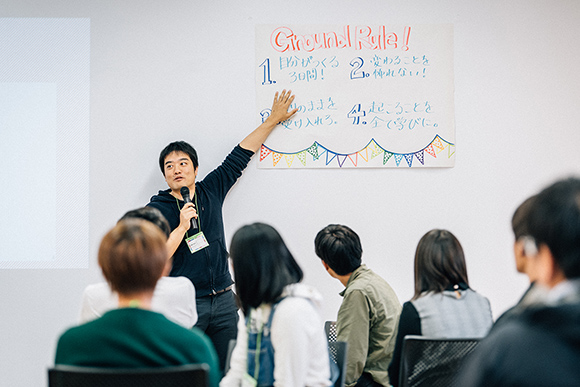 Ground Rule!
1. 自分びっくり
3日間!
2. 変わることを
怖れない!
のままを
受け入れる。
4. 起こることを
全て学びに。